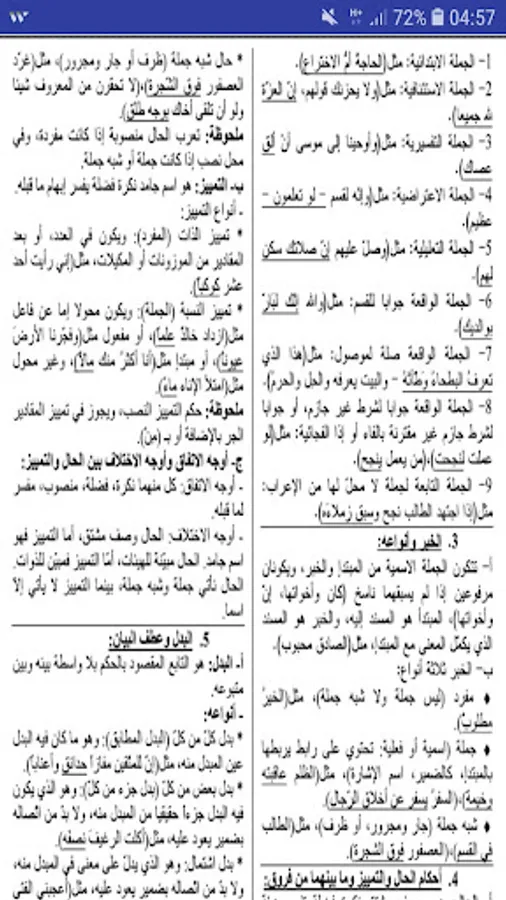 72% 04:57
1- الجملة الابتدائية: مثل(الحاجة أمُّ الاختراع).
2- الجملة الاستئنافية: مثل(ولا يحزنك قولهم، إنّ العزّة
لله جميعا).
3- الجملة التفسيرية: مثل(وأوحينا إلى موسى أنْ ألق
عصاك).
4- الجملة الاعتراضية: مثل(وإنّه لقسم – لو تعلمون –
عظيم).
5- الجملة التعليلية: مثل(وصلّ عليهم إنّ صلاتك سكن
لهم).
6- الجملة الواقعة جوابا للقسم: مثل(والله إنّك لبارّ
بوالديك).
7- الجملة الواقعة صلة لموصول: مثل(هذا الذي
تعرفُ البطحاءُ وَطْأتَهُ – والبيت يعرفه والحل والحرمُ).
8- الجملة الواقعة جوابا لشرط غير جازم، أو جوابا
لشرط جازم غير مقترنة بالفاء أو إذا الفجائية: مثل(لو
عملت لنجحت)،(من يعمل ينجح).
9- الجملة التابعة لجملة لا محلّ لها من الإعراب:
مثل(إذا اجتهد الطالب نجح وسبق زملاءه).
3. الخبر وأنواعه:
أ- تتكون الجملة الاسمية من المبتدإ والخبر، ويكونان
مرفوعين إذا لم يسبقهما ناسخ (كان وأخواتها، إنّ
وأخواتها)، المبتدأ هو المسند إليه، والخبر هو المسند
الذي يكمّل المعنى مع المبتدإ، مثل(الصادق محبوب).
ب- الخبر ثلاثة أنواع:
♦ مفرد (ليس جملة ولا شبه جملة)، مثل(الخيرُ
مطلوبٌ).
♦ جملة (اسمية أو فعلية): تحتوي على رابط يربطها
بالمبتدإ، كالضمير، اسم الإشارة)، مثل(الظلم عاقبته
وخيمة)،(السفرُ يسفر عن أخلاق الرّجال).
♦ شبه جملة (جار ومجرور، أو ظرف)، مثل(الطالب
في القسم)،(العصفور فوق الشجرة).
4. أحكام الحال والتمييز وما بينهما من فروق:
* حال شبه جملة (ظرف أو جار ومجرور)، مثل(غرّد
العصفور فوق الشّجرة)،(لا تحقرن من المعروف شيئا
ولو أن تلقى أخاك بوجه طلق).
ملحوظة: تعرب الحال منصوبة إذا كانت مفردة، وفي
محل نصب إذا كانت جملة أو شبه جملة.
ب- التمييز: هو اسم جامد نكرة فضلة يفسر إبهام ما قبله.
- أنواع التمييز:
* تمييز الذات (المفرد): ويكون في العدد، أو بعد
المقادير من الموزونات أو المكيلات، مثل(إني رأيت أحد
عشر كوكبا).
* تمييز النسبة (الجملة): ويكون محولا إما عن فاعل
مثل(ازداد خالدٌ علماً)، أو مفعول مثل(وفجّرنا الأرضَ
عيوناً)، أو مبتدإ مثل(أنا أكثرُ منك مالاً)، وغير محول
مثل(امتلأ الإناء ماءً).
ملحوظة: حكم التمييز النصب، ويجوز في تمييز المقادير
الجر بالإضافة أو بـ (مِنْ).
ج- أوجه الاتفاق وأوجه الاختلاف بين الحال والتمييز:
- أوجه الاتفاق: كل منهما نكرة، فضلة، منصوب، مفسر
لما قبله.
- أوجه الاختلاف: الحال وصف مشتق، أما التمييز فهو
اسم جامد. الحال مبيّنة للهيئات، أمّا التمييز فمبيّن للذوات.
الحال تأتي جملة وشبه جملة، بينما التمييز لا يأتي إلاّ
اسما.
5. البدل وعطف البيان:
أ- البدل: هو التابع المقصود بالحكم بلا واسطة بينه وبين
متبوعه.
- أنواعه:
* بدل كلّ من كلّ (البدل المطابق): وهو ما كان فيه البدل
عين المبدل منه، مثل(إنّ للمتّقين مفازاً حدائق وأعناباً).
* بدل بعض من كلّ (بدل جزء من كلّ): وهو الذي يكون
فيه البدل جزءاً حقيقيا من المبدل منه، ولا بدّ من اتصاله
بضمير يعود عليه، مثل(أكلت الرغيفَ نصفه).
* بدل اشتمال: وهو الذي يدلّ على معنى في المبدل منه،
ولا بدّ من اتصاله بضمير يعود عليه، مثل(أعجبني الفتى